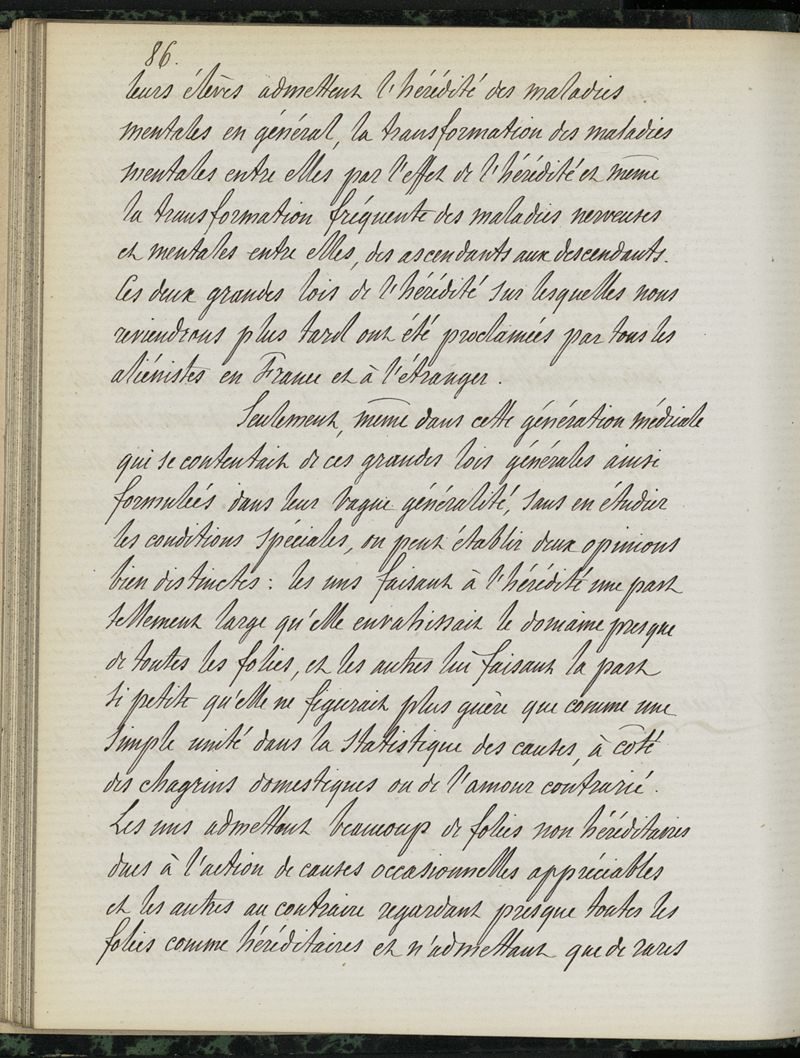 86.
leurs élèves admettent l'hérédité des maladies
mentales en général, la transformation des maladies
mentales entre elles par l'effet de l'hérédité et même
la transformation fréquente des maladies nerveuses
et mentales entre elles, des ascendants aux descendants.
Ces deux grandes lois de l'hérédité sur lesquelles nous
reviendrons plus tard ont été proclamées par tous les
aliénistes en France et à l'étranger.
Seulement, même dans cette génération médicale
qui se contentait de ces grandes lois générales ainsi
formulées dans leur vague généralité, sans en étudier
les conditions spéciales, on peut établir deux opinions
bien distinctes : les uns faisant à l'hérédité une part
tellement large qu'elle envahissait le domaine presque
de toutes les folies, et les autres lui faisant la part
si petite qu'elle ne figurait plus guère que comme une
simple unité dans la statistique des causes, à coté
des chagrins domestiques ou de l'amour contrarié.
Les uns admettant beaucoup de folies non héréditaires
dues à l'action de causes occasionnelles appréciables
et les autres au contraire regardant presque toutes les
folies comme héréditaires et n'admettant que de rares